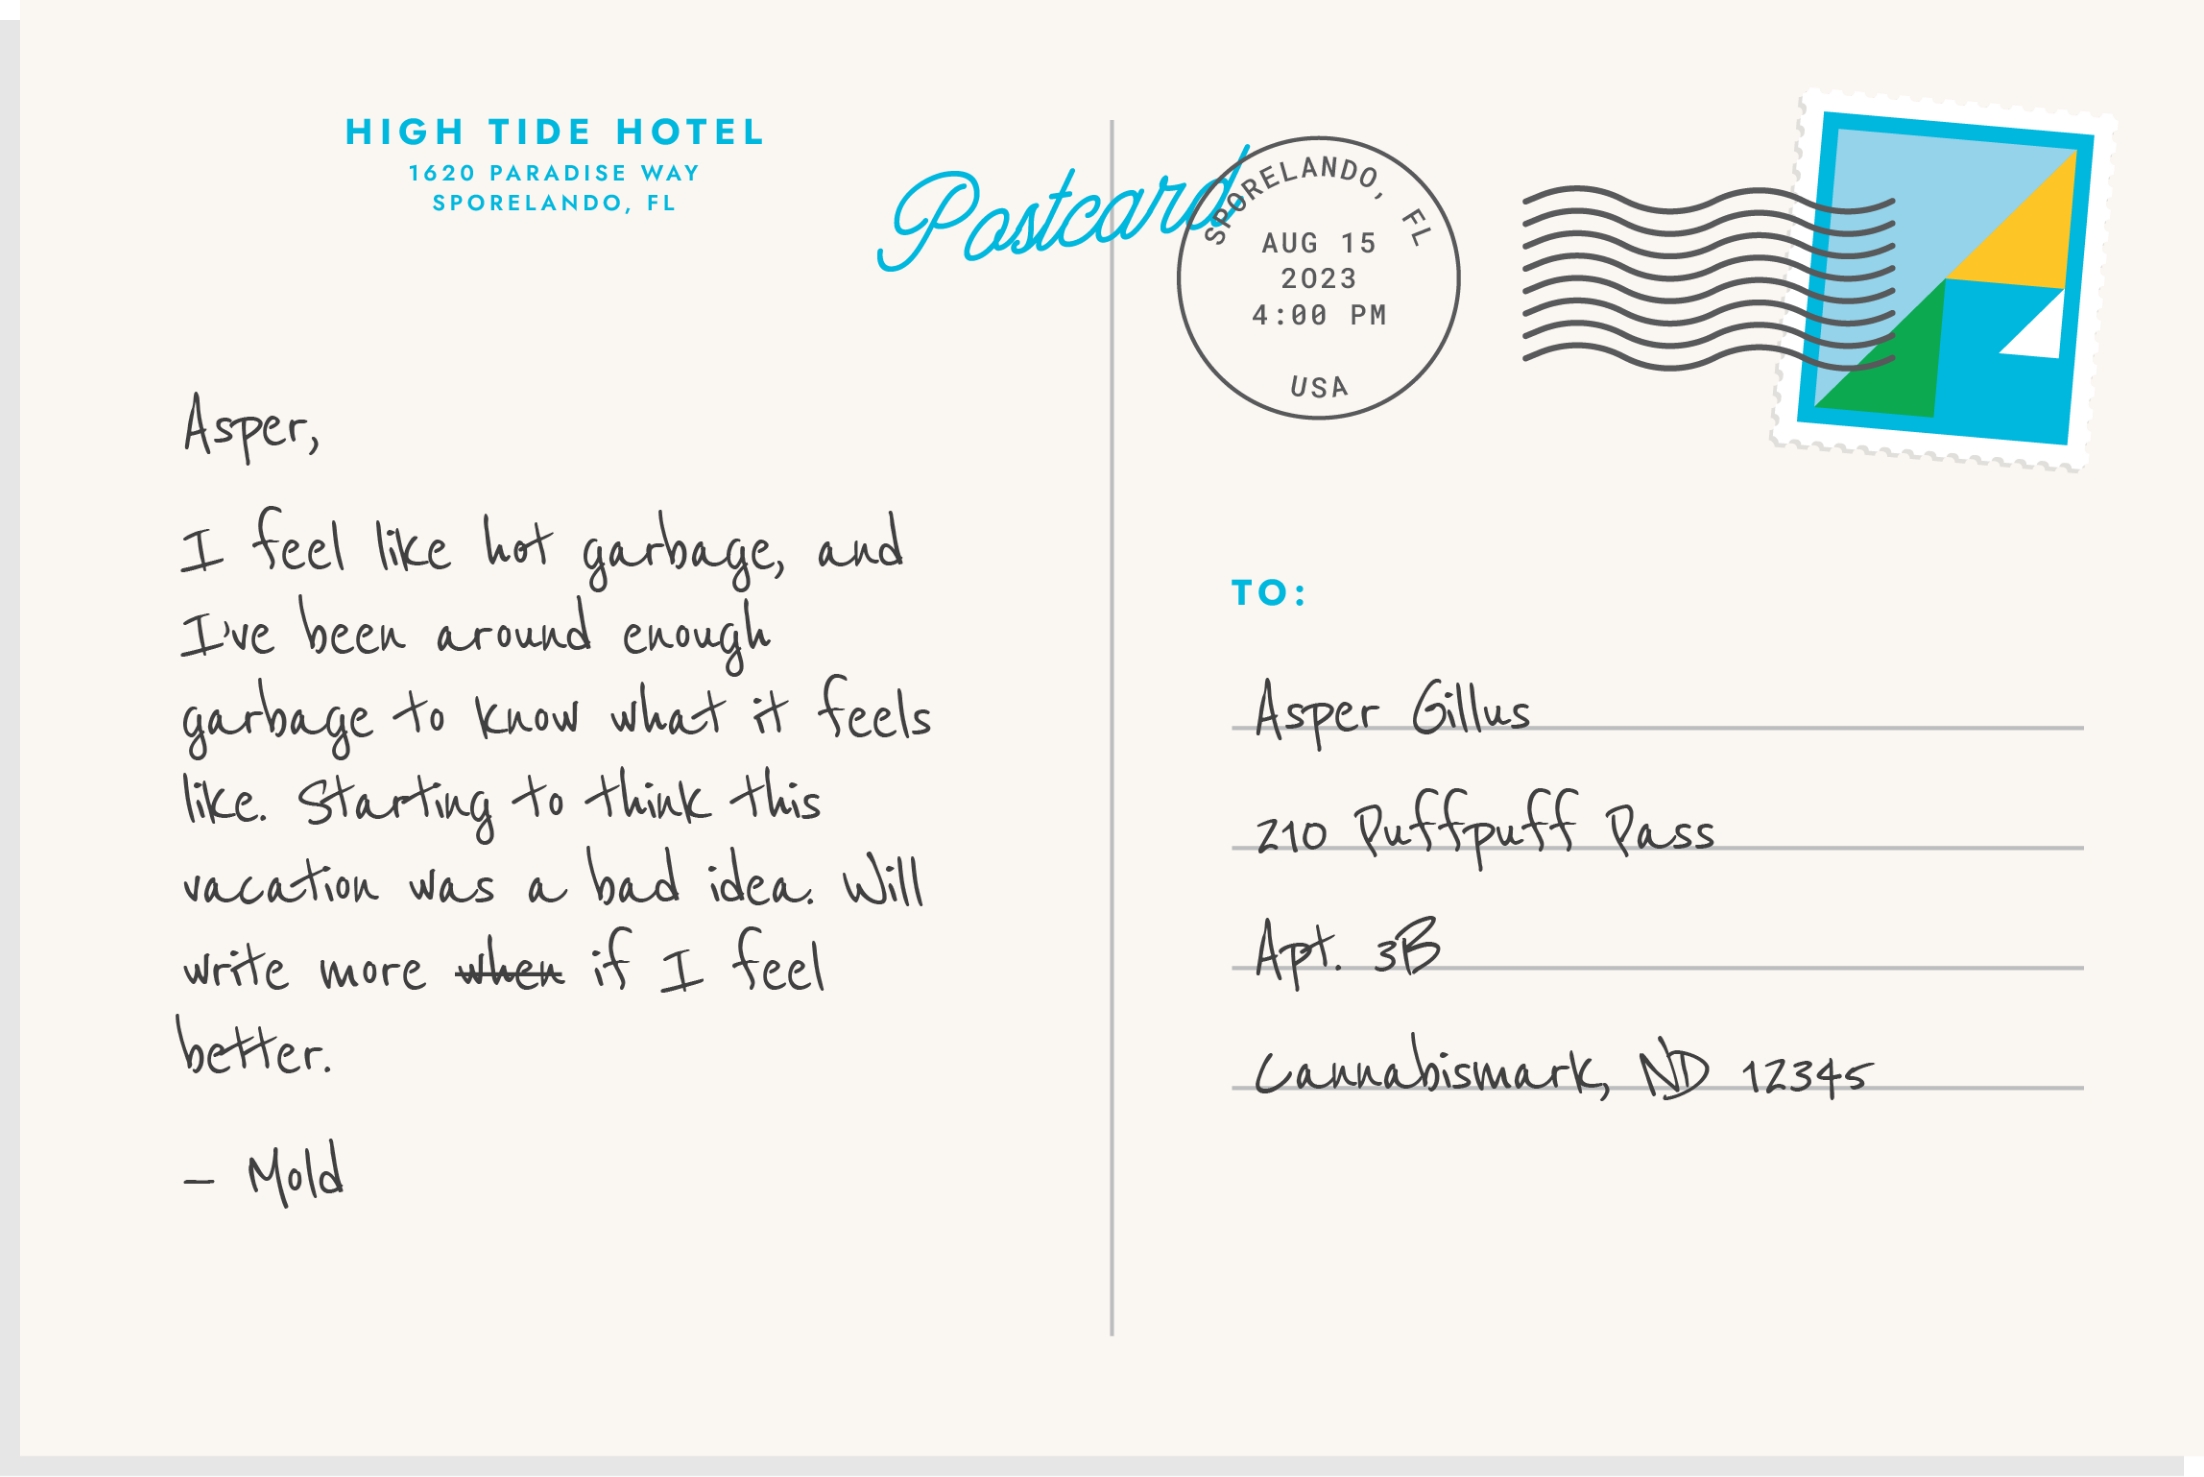 HIGH TIDE HOTEL
1620 PARADISE WAY
SPORELANDO, FL
Postcard
Asper,
I feel like hot garbage, and
I've been around enough
garbage to know what it feels
like. Starting to think this
vacation was a bad idea. Will
write more when if I feel
better.
— Mold
SPORELANDO, FL
AUG 15
2023
4:00 PM
USA
TO:
Asper Gillus
210 Puffpuff Pass
Apt. 3B
Cannabismark, ND 12345